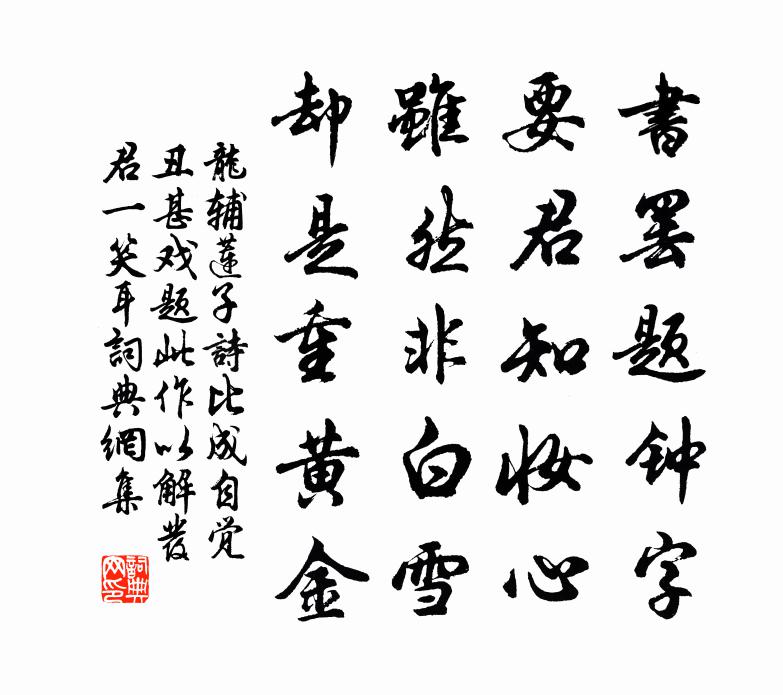 書罢題钟字
要君知妝心
雖然非白雪
却是重黄金
龍辅蓮子詩比成自觉
丑甚戏题此作以解發
君一笑耳詞典網集
詞典網印